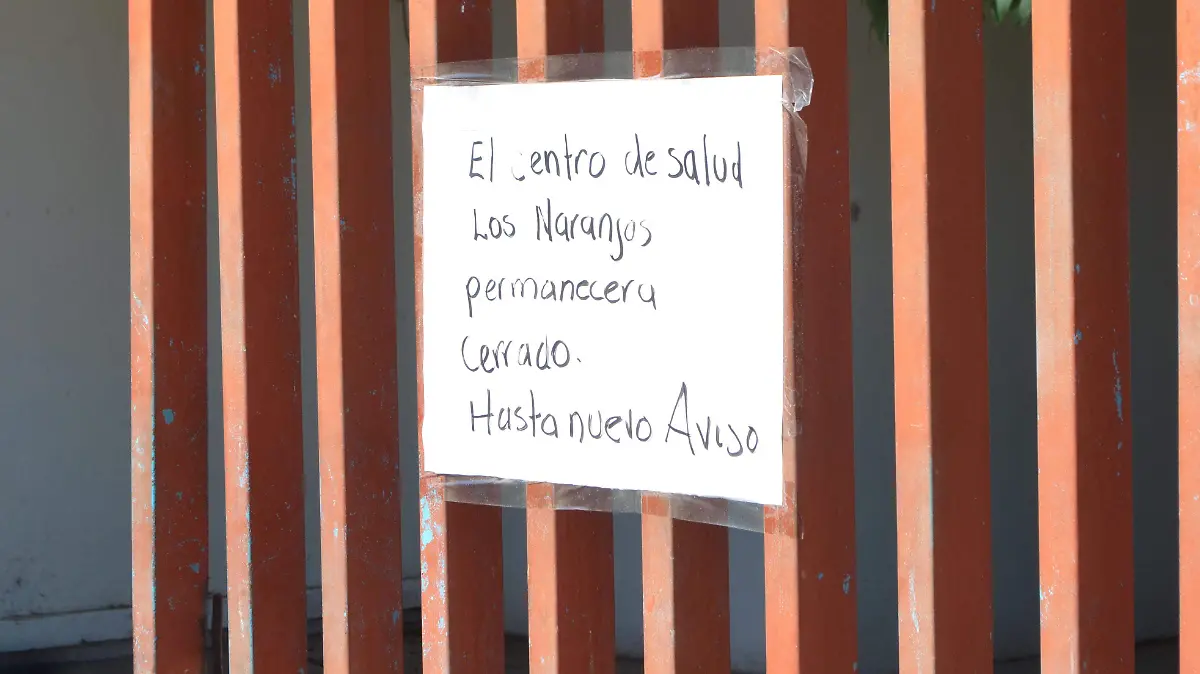 El centro de salud
Los Naranjos
permanecera
Cerrado.
Hasta nuevo Aviso